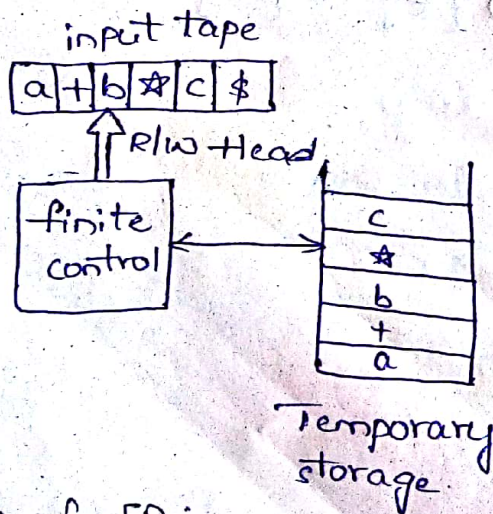 input tape
a + b ☆ c $
R/W Head
finite
control
c
☆
b
+
a
Temporary
storage.